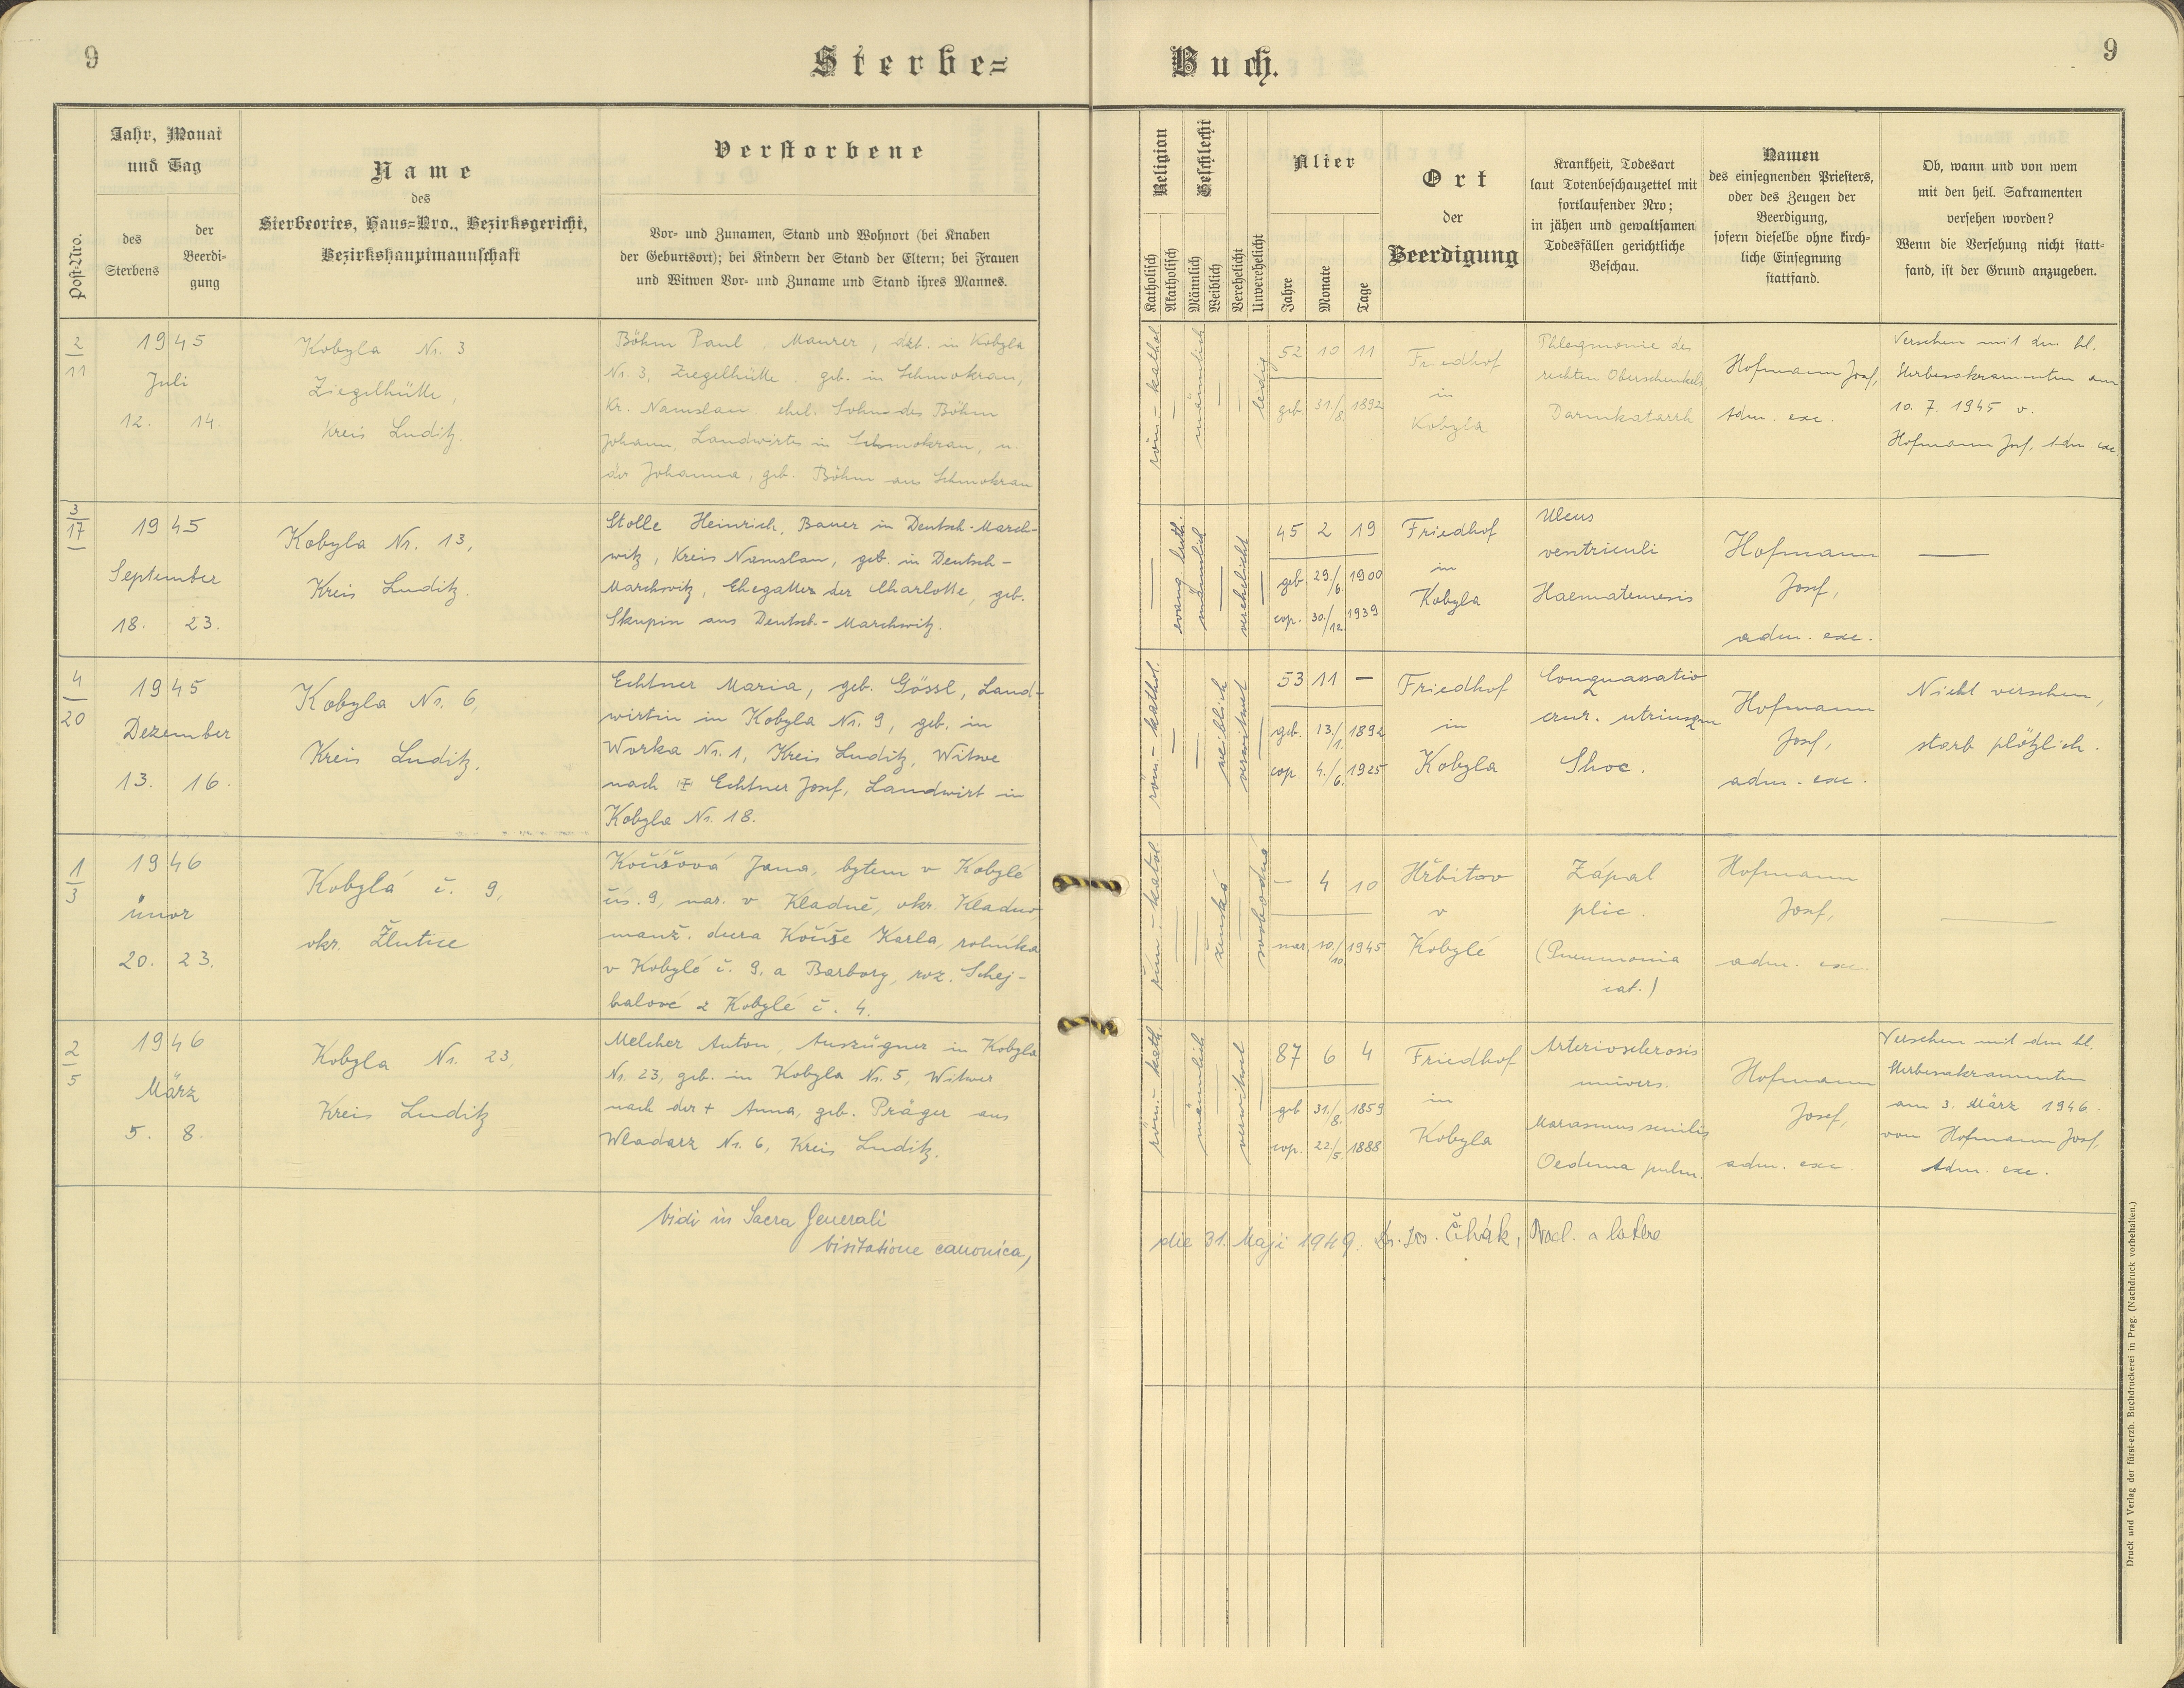 9
Sterbe=
Buch.
9
Post-Nro.
Jahr, Monat
und Tag
des
Sterbens
der
Beerdi-
gung
Name
des
Sterbeortes, Haus=Nro., Bezirksgericht,
Bezirkshauptmannschaft
Verstorbene
Vor- und Zunamen, Stand und Wohnort (bei Knaben
der Geburtsort); bei Kindern der Stand der Eltern; bei Frauen
und Witwen Vor- und Zuname und Stand ihres Mannes.
Religion
Katholisch
Akatholisch
Geschlecht
Männlich
Weiblich
Verehelicht
Unverehelicht
Alter
Jahre
Monate
Tage
Ort
der
Beerdigung
Krankheit, Todesart
laut Totenbeschauzettel mit
fortlaufender Nro;
in jähen und gewaltsamen
Todesfällen gerichtliche
Beschau.
Namen
des einsegnenden Priesters,
oder des Zeugen der
Beerdigung,
sofern dieselbe ohne kirch-
liche Einsegnung
stattfand.
Ob, wann und von wem
mit den heil. Sakramenten
versehen worden?
Wenn die Versehung nicht statt=
fand, ist der Grund anzugeben.
2
11
1945
Juli
12. 14.
Kobyla Nr. 3
Ziegelhütte,
Kreis Luditz.
Böhm Paul, Maurer, dzt. in Kobyla
Nr. 3, Ziegelhütte, geb. in Schmokrau,
Kr. Namslau, ehel. Sohn des Böhm
Johann, Landwirtes in Schmokrau, u.
der Johanna, geb. Böhm aus Schmokrau
röm.-kathol
männlich
ledig
52 10 11
geb. 31./8. 1892
Friedhof
in
Kobyla
Phlegmonie des
rechten Oberschenkels
Darmkatarrh
Hofmann Josf,
Adm. exc.
Versehen mit den hl.
Sterbesakramenten am
10. 7. 1945 v.
Hofmann Josf, Adm. exc.
3
17
1945
September
18. 23.
Kobyla Nr. 13,
Kreis Luditz.
Stolle Heinrich, Bauer in Deutsch-March-
witz, Kreis Namslau, geb. in Deutsch-
Marchwitz, Ehegatte der Charlotte, geb.
Skupin aus Deutsch-Marchwitz.
evang. luth.
männlich
verehelicht
45 2 19
geb 29./6. 1900
cop. 30./12. 1939
Friedhof
in
Kobyla
Ulcus
ventriculi
Haematemesis
Hofmann
Josf,
adm. exc.
4
20
1945
Dezember
13. 16.
Kobyla Nr. 6,
Kreis Luditz.
Echtner Maria, geb. Gössl, Land-
wirtin in Kobyla Nr. 9, geb. in
Worka Nr. 1, Kreis Luditz, Witwe
nach Echtner Josf, Landwirt in
Kobyla Nr. 18.
röm-kathol.
weiblich
verwitwet
53 11 -
geb. 13./1. 1892
cop. 4./6. 1925
Friedhof
in
Kobyla
Conquassatio
crur. utriusqu
Shoc.
Hofmann
Josf,
adm. exc.
Nicht versehen,
starb plötzlich.
1
3
1946
únor
20. 23.
Kobylá č. 9,
okr. Žlutice
Kočišová Jana, bytem v Kobylé
čís. 9, nar. v Kladně, okr. Kladno,
manž. dcera Kočiše Karla, rolníka
v Kobylé č. 9, a Barbory, roz. Schej-
balové z Kobylé č. 4.
řím-katol
ženská
svobodná
- 4 10
nar. 10./10. 1945
Hřbitov
v
Kobylé
Zápal
plic.
(Pneumonia
cat.)
Hofmann
Josf,
adm. exc.
2
5
1946
März
5. 8.
Kobyla Nr. 23,
Kreis Luditz
Melcher Anton, Auszügner in Kobyla
Nr. 23, geb. in Kobyla Nr. 5, Witwer
nach der + Anna, geb. Präger aus
Wladarz Nr. 6, Kreis Luditz.
röm-kath
männlich
verwitwet
87 6 4
geb 31./8. 1859
cop. 22./5. 1888
Friedhof
in
Kobyla
Arteriosclerosis
univers.
Marasmus senilis
Oedema pulm.
Hofmann
Josef,
adm. exc.
Versehen mit den hl.
Sterbesakramenten
am 3. März 1946.
von Hofmann Josf,
Adm. exc.
Vidi in Sacra Generali
Visitatione canonica,
die 31. Maji 1949. Dr. Jos. Čihák, Prael. a latere
Druck und Verlag der fürst-erzb. Buchdruckerei in Prag. (Nachdruck vorbehalten.)